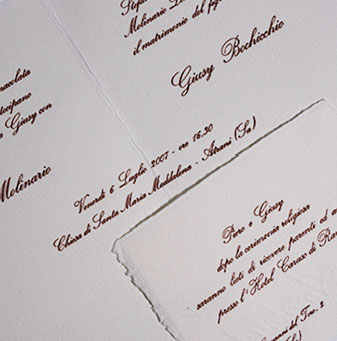 Molinario
il matrimonio del
Giusy Bochicchio
tecipano
Giusy con
Molinario
Venerdì 6 Luglio 2007 - ore 16,30
Chiesa di Santa Maria Maddalena - Atrani (Sa)
Piero e Giusy
dopo la cerimonia religiosa
saranno lieti di ricevere parenti ed
presso l'Hotel Caruso di